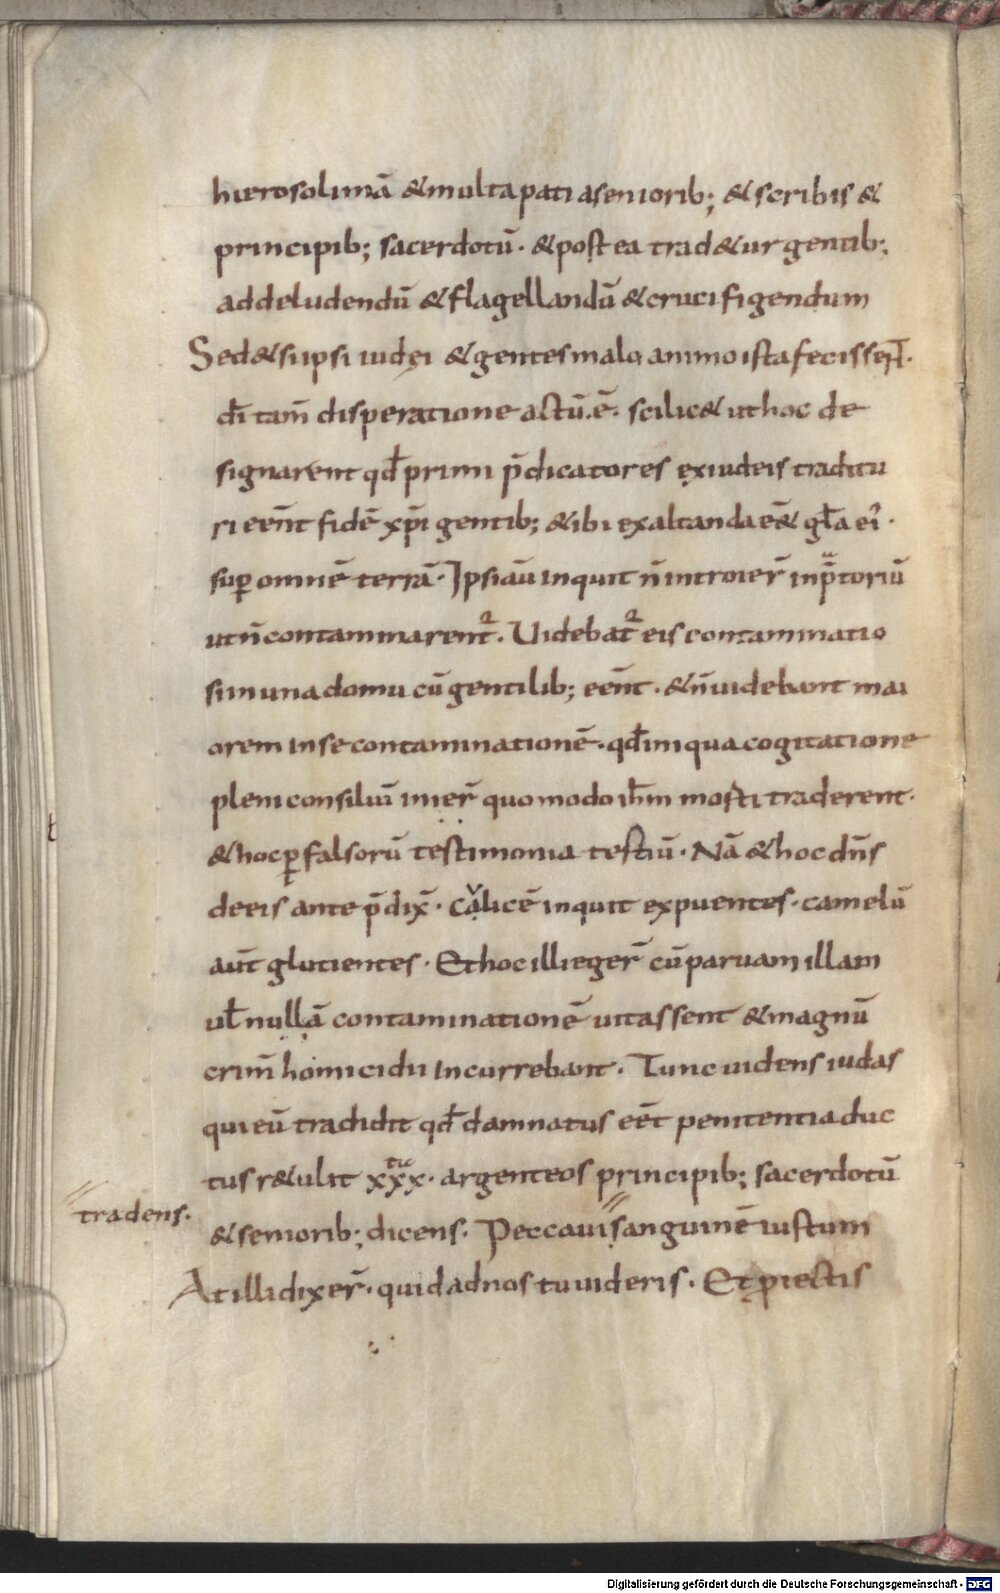 hierosolimā & multa pati a seniorib; & scribis &
principib; sacerdotū · & post ea trad&ur gentib;
ad deludendū & flagellandū & crucifigendum
Sed & si ipsi iudęi & gentes malo animo ista fecissent̄ ·
dī tam̄ disperatione actū.ē · scilic& ut hoc de
signarent qđ primi p̄dicatores ex iudeis traditu
ri eēnt fidē xp̄i gentib; & ibi exaltanda eē& gła ei᾽ ·
suꝑ omnē terrā · Ipsi aū inquit n̄ introier̄ in p̄toriū
ut n̄ contaminarent᷑ · Uidebat᷑ eis contaminatio
si in una domu cū gentilib; eēnt · & n̄ uidebant mai
orem in se contaminationē · qđ iniqua cogitatione
pleni consiliū inier̄ quomodo ih̄m morti traderent ·
& hoc ꝑ falsorū testimonia testiū · Nā & hoc dn̄s
de eis ante p̄dix̄ · Cǎlicē inquit expuentes · camelū
aūt glutientes · Et hoc illi eger̄ cū paruam illam
uł nullā contaminationē uitassent & magnū
crim̄ homicidii incurrebant · Tunc uidens iudas
qui eū tradidit qđ damnatus eēt penitentia duc
tus r&ulit xxx · argenteos principib; sacerdotū
tradens ·
& seniorib; dicens · Peccaui sanguinē iustum
At illi dixer̄ · quid ad nos tu uideris · Et ꝓiectis
Digitalisierung gefördert durch die Deutsche Forschungsgemeinschaft - DFG